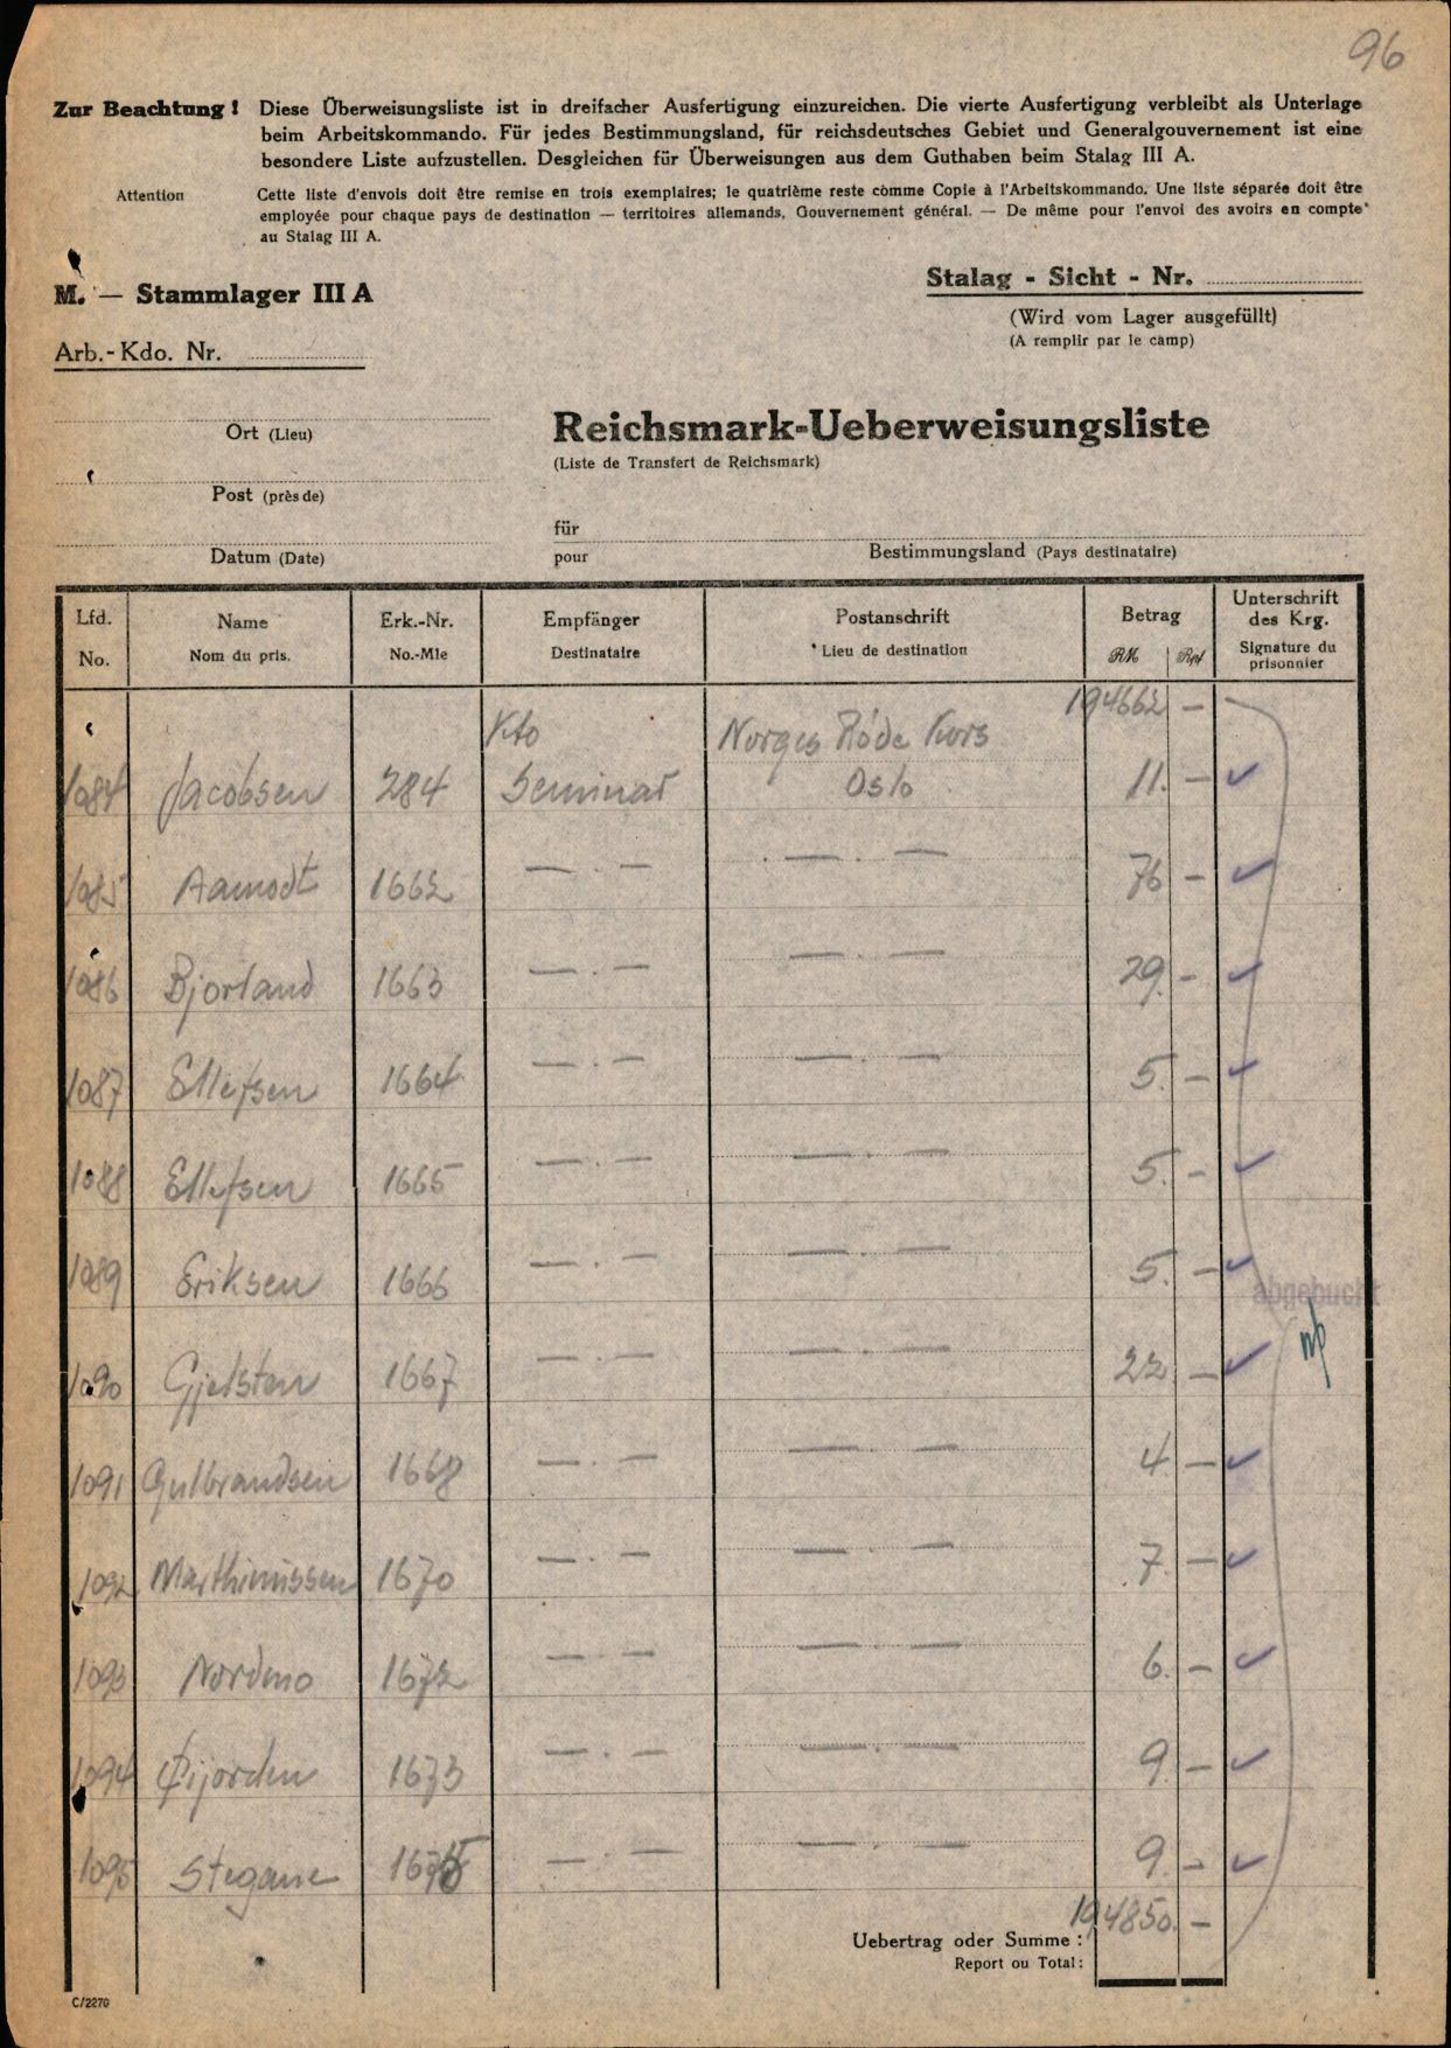 96
Zur Beachtung! Diese Überweisungsliste ist in dreifacher Ausfertigung einzureichen. Die vierte Ausfertigung verbleibt als Unterlage
beim Arbeitskommando. Für jedes Bestimmungsland, für reichsdeutsches Gebiet und Generalgouvernement ist eine
besondere Liste aufzustellen. Desgleichen für Überweisungen aus dem Guthaben beim Stalag III A.
Attention Cette liste d'envois doit être remise en trois exemplaires; le quatrième reste comme Copie à l'Arbeitskommando. Une liste séparée doit être
employée pour chaque pays de destination — territoires allemands, Gouvernement général. — De même pour l'envoi des avoirs en compte
au Stalag III A.
M. — Stammlager III A
Stalag - Sicht - Nr.
(Wird vom Lager ausgefüllt)
(A remplir par le camp)
Arb.-Kdo. Nr.
Ort (Lieu)
Post (près de)
Datum (Date)
Reichsmark-Ueberweisungsliste
(Liste de Transfert de Reichsmark)
für
pour
Bestimmungsland (Pays destinataire)
Lfd. Name Erk.-Nr. Empfänger Postanschrift Betrag Unterschrift des Krg.
No. Nom du pris. No.-Mle Destinataire Lieu de destination RM Rpf Signature du prisonnier
194662 —
Kto Norges Röde Kors
1084 Jacobsen 284 Seminar Oslo 11. —
1085 Aamodt 1662 — . — — . — 76 —
1086 Bjorland 1663 — . — — . — 29. —
1087 Ellefsen 1664 — . — — . — 5. —
1088 Ellefsen 1665 — . — — . — 5. —
1089 Eriksen 1666 — . — — . — 5. —
abgebucht
1090 Gjelsten 1667 — . — — . — 22. —
1091 Gulbrandsen 1668 — . — — . — 4 —
1092 Marthinussen 1670 — . — — . — 7. —
1093 Nordmo 1672 — . — — . — 6. —
1094 Öijorden 1673 — . — — . — 9. —
1095 Stegane 1675 — . — — . — 9. —
194850. —
Uebertrag oder Summe :
Report ou Total:
C/2270